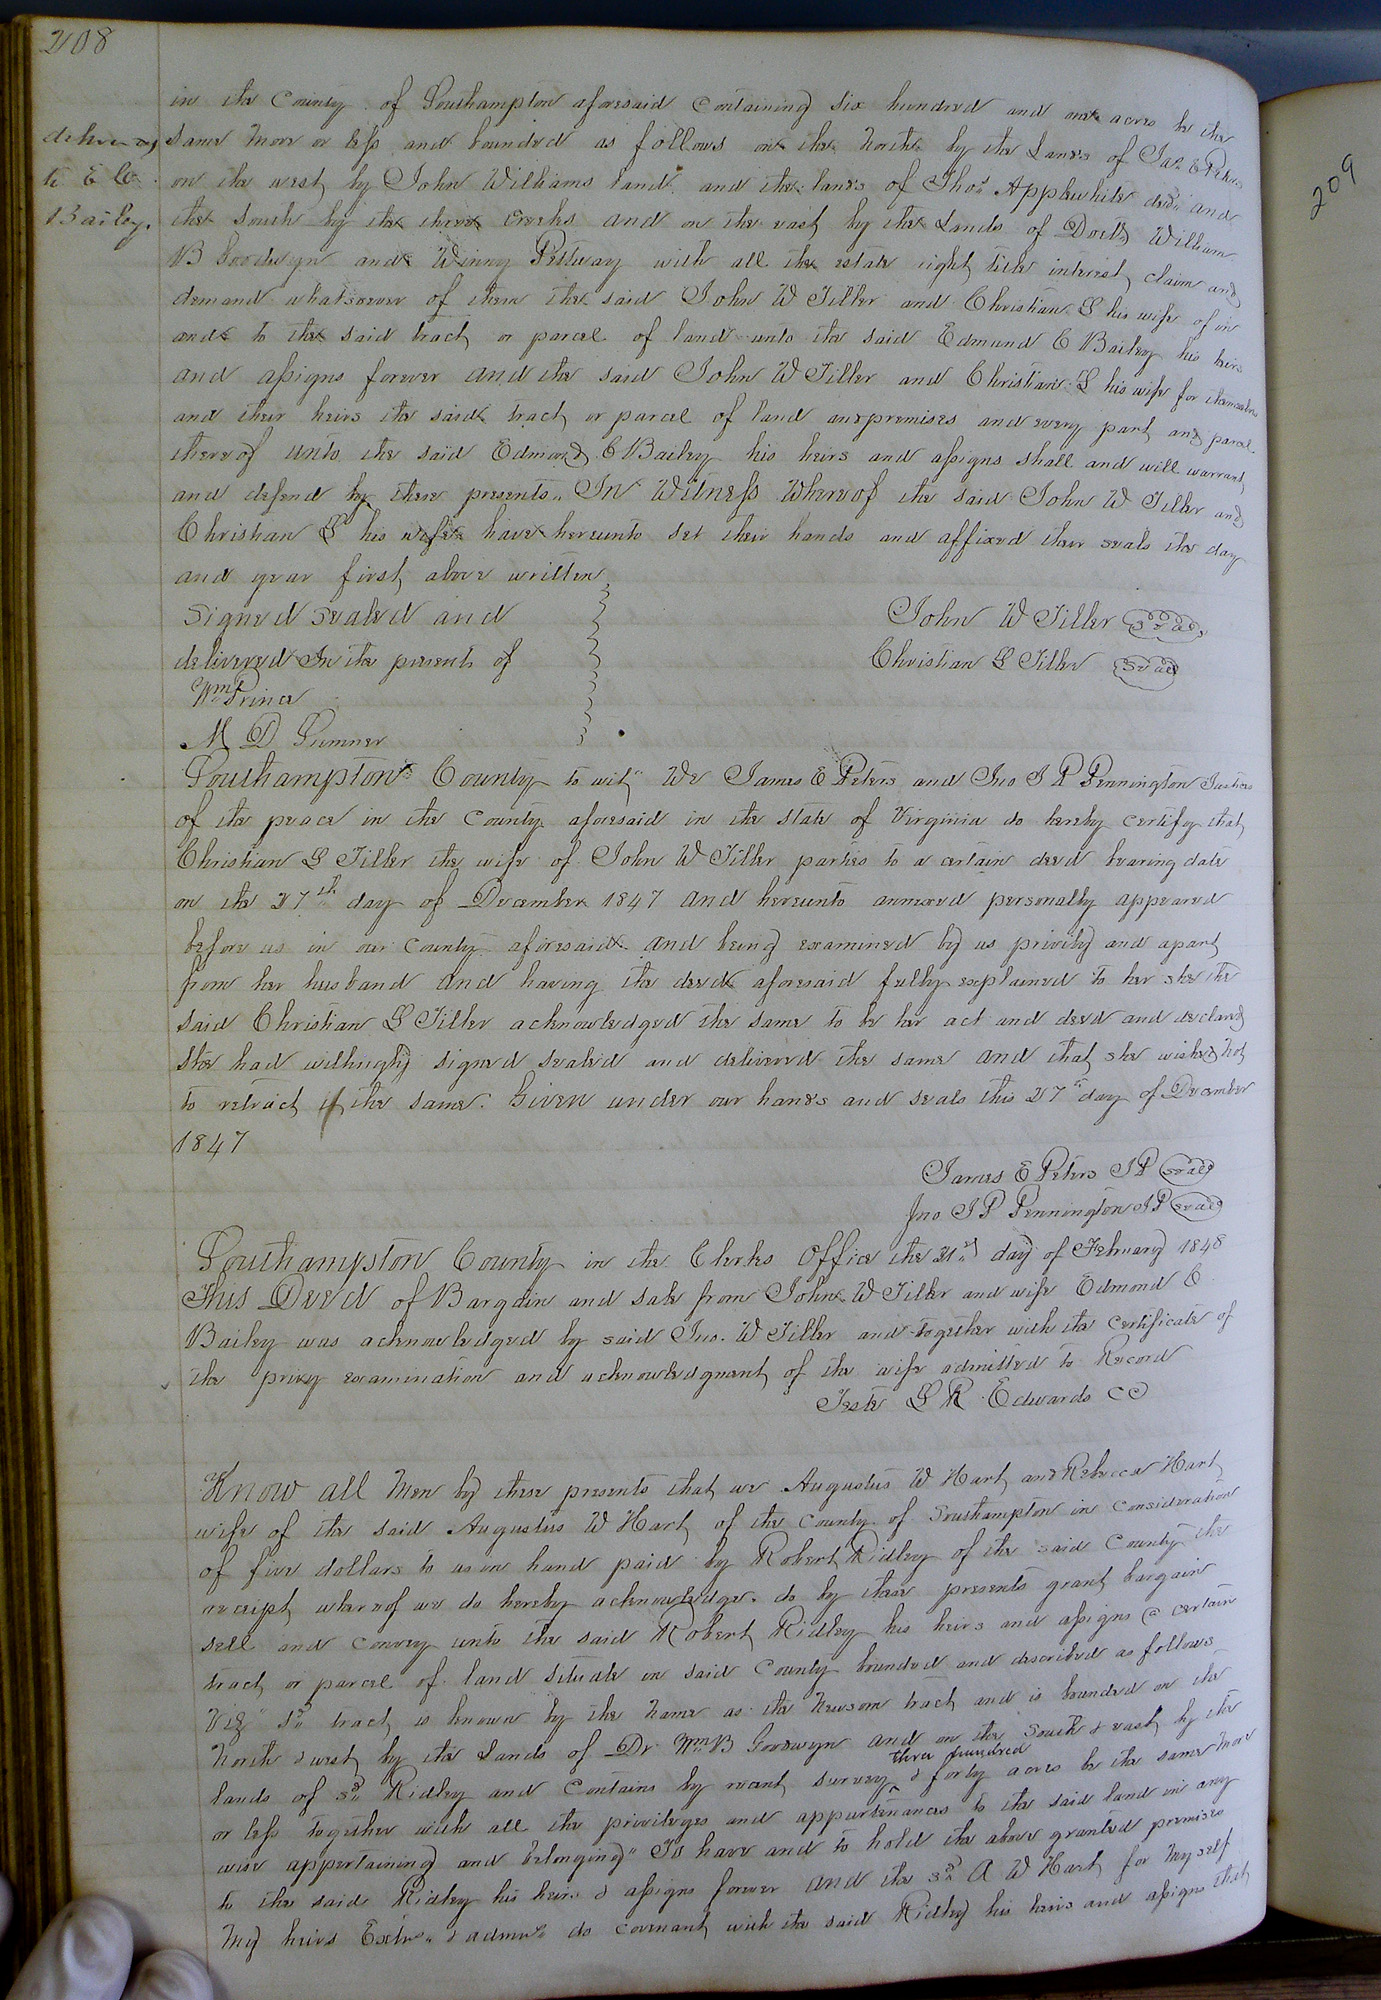 208
in the County of Southampton aforesaid Containing Six hundred and one acres be the
delivered
same more or less and bounded as follows on the North by the Lands of Jas E Peters
to E C
on the west by John Williams land and the lands of Thos Applewhite decd and
Bailey.
the South by the three creeks and on the east by the Lands of Doctr William
B Goodwyn and Winny Pettway with all the estate right title interest claim and
demand whatsoever of them the said John W Tiller and Christian S his wife of in
and to the said tract or parcel of land unto the said Edmund C Bailey his heirs
and assigns forever and the said John W Tiller and Christian S his wife for themselves
and their heirs the said tract or parcel of land and premises and every part and parcel
thereof unto the said Edmond C Bailey his heirs and assigns shall and will warrant
and defend by these presents. In Witness Whereof the said John W Tiller and
Christian S his wife have hereunto set their hands and affixed their seals the day
and year first above written
Signed sealed and
John W Tiller Seal
delivered In the presents of
Christian S Tiller Seal
Wm Prince
M D Sumner
Southampton County to wit" We James E Peters and Jno J P Pennington Justices
of the peace in the County aforesaid in the state of Virginia do hereby certify that
Christian S Tiller the wife of John W Tiller parties to a certain deed bearing date
on the 27th day of December 1847 and hereunto annexed personally appeared
before us in our County aforesaid and being examined by us privily and apart
from her husband and having the deed aforesaid fully explained to her she the
said Christian S Tiller acknowledged the same to be her act and deed and declared
she had willingly signed sealed and delivered the same and that she wished not
to retract the same. Given under our hands and seals this 27th day of December
1847
James E Peters JP Seal
Jno J P Pennington JP Seal
Southampton County in the Clerks Office the 21st day of February 1848
This Deed of Bargain and sale from John W Tiller and wife Edmond C
Bailey was acknowledged by said Jno. W Tiller and together with the certificate of
the privy examination and acknowledgment of the wife admitted to Record
Teste L R Edwards CC
Know all Men by these presents that we Augustus W Hart and Rebecca Hart
wife of the said Augustus W Hart of the County of Southampton in Consideration
of five dollars to us in hand paid by Robert Ridley of the said County the
receipt whereof we do hereby acknowledge. do by these presents grant bargain
sell and convey unto the said Robert Ridley his heirs and assigns a certain
tract or parcel of land situate in said County bounded and described as follows
Viz" sd tract is known by the name as the Newsom tract and is bounded on the
North & west by the Lands of Dr Wm B Goodwyn and on the South & east by the
lands of sd Ridley and Contains by recent survey three hundred & forty acres be the same more
or less together with all the privileges and appurtenances to the said land in any
wise appertaining and belonging" To have and to hold the above granted premises
to the said Ridley his heirs & assigns forever and the sd A W Hart for Myself
My heirs Extrs & admrs do covenant with the said Ridley his heirs and assigns that
209